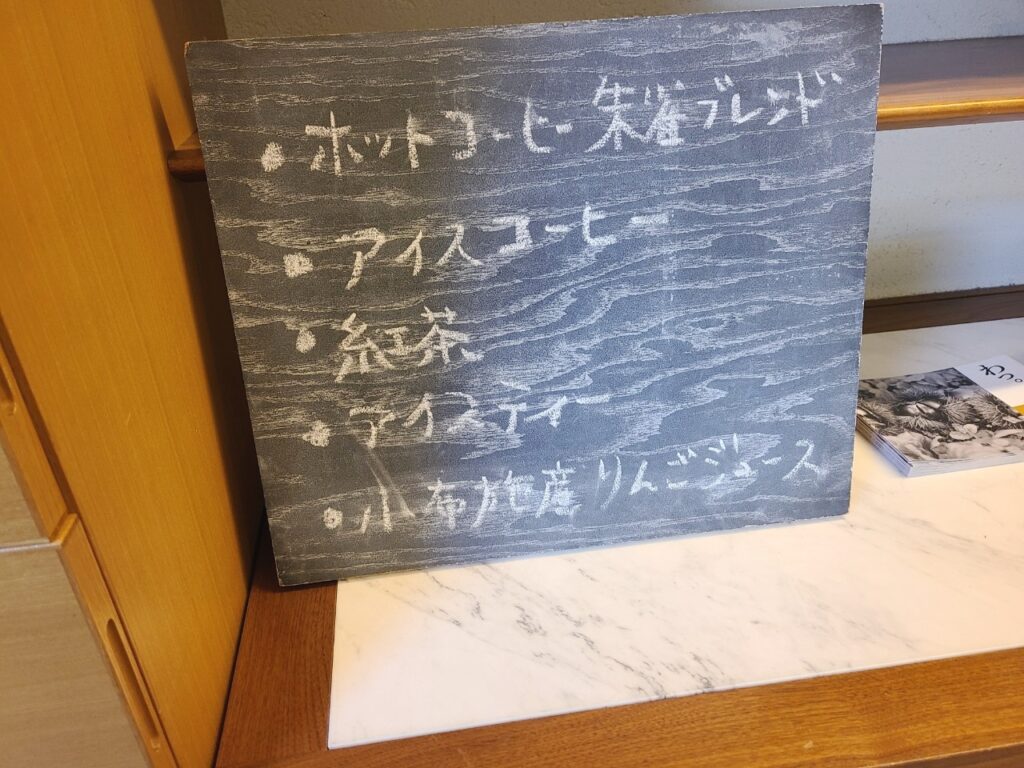 ● ホットコーヒー 朱雀ブレンド
● アイスコーヒー
● 紅茶
● アイスティー
● 小布施産りんごジュース
わっ。